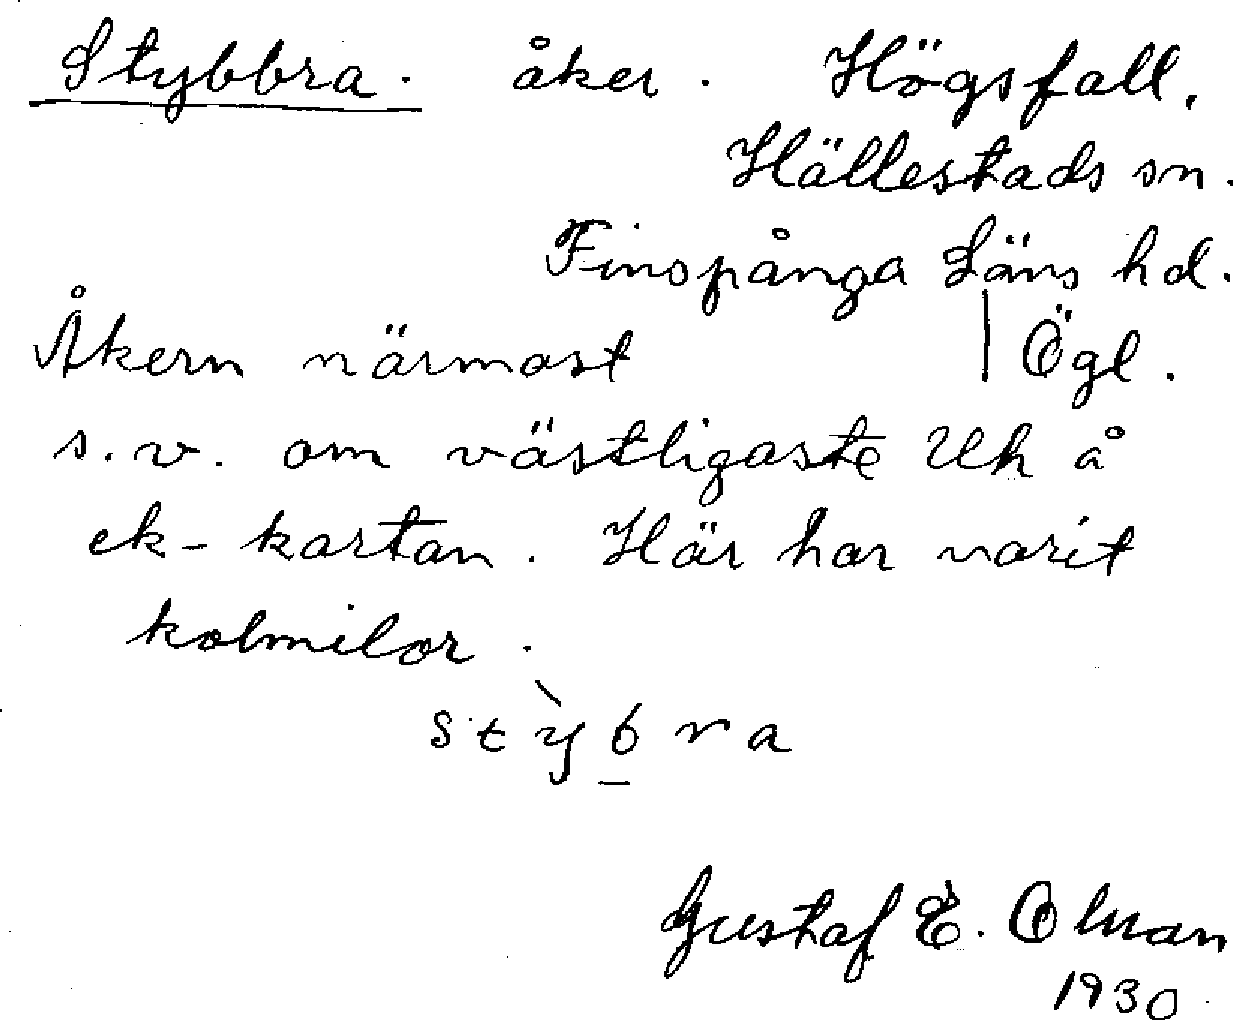 Stybbra. åker. Högsfall,
Hällestads sn.
Finspånga Läns hd.
Åkern närmast | Ögl.
s.v. om västligaste Uh å
ek-kartan. Här har varit
kolmilor.
stỳb̲ra
Gustaf E. Olman
1930.